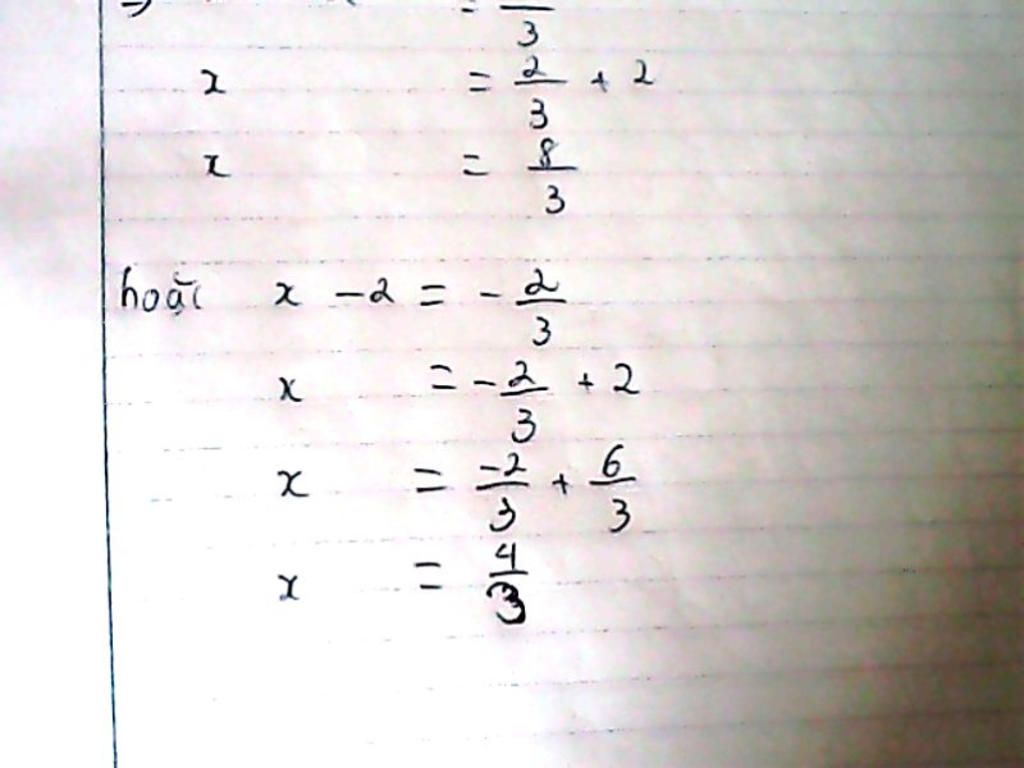 ⇒ = /3
x = 2/3 + 2
x = 8/3
hoặc x - 2 = - 2/3
x = - 2/3 + 2
x = -2/3 + 6/3
x = 4/3